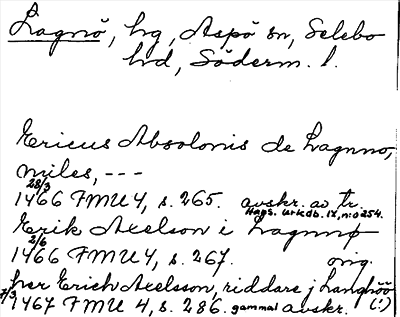 Lagnö, hg, Aspö sn, Selebo
hd, Söderm. l.
Ericus Absolonis de Lagnno,
miles, ---
28/3
1466 FMU 4, s. 265. avskr. av tr.
Haps. urkdb. IX, n:o 254.
Erik Axelson i Lagnnø
2/6
1466 FMU 4, s. 267. orig.
her Erich Axelsson, riddare j Langhöö
7/3 (:)
1467 FMU 4, s. 286. gammal avskr.